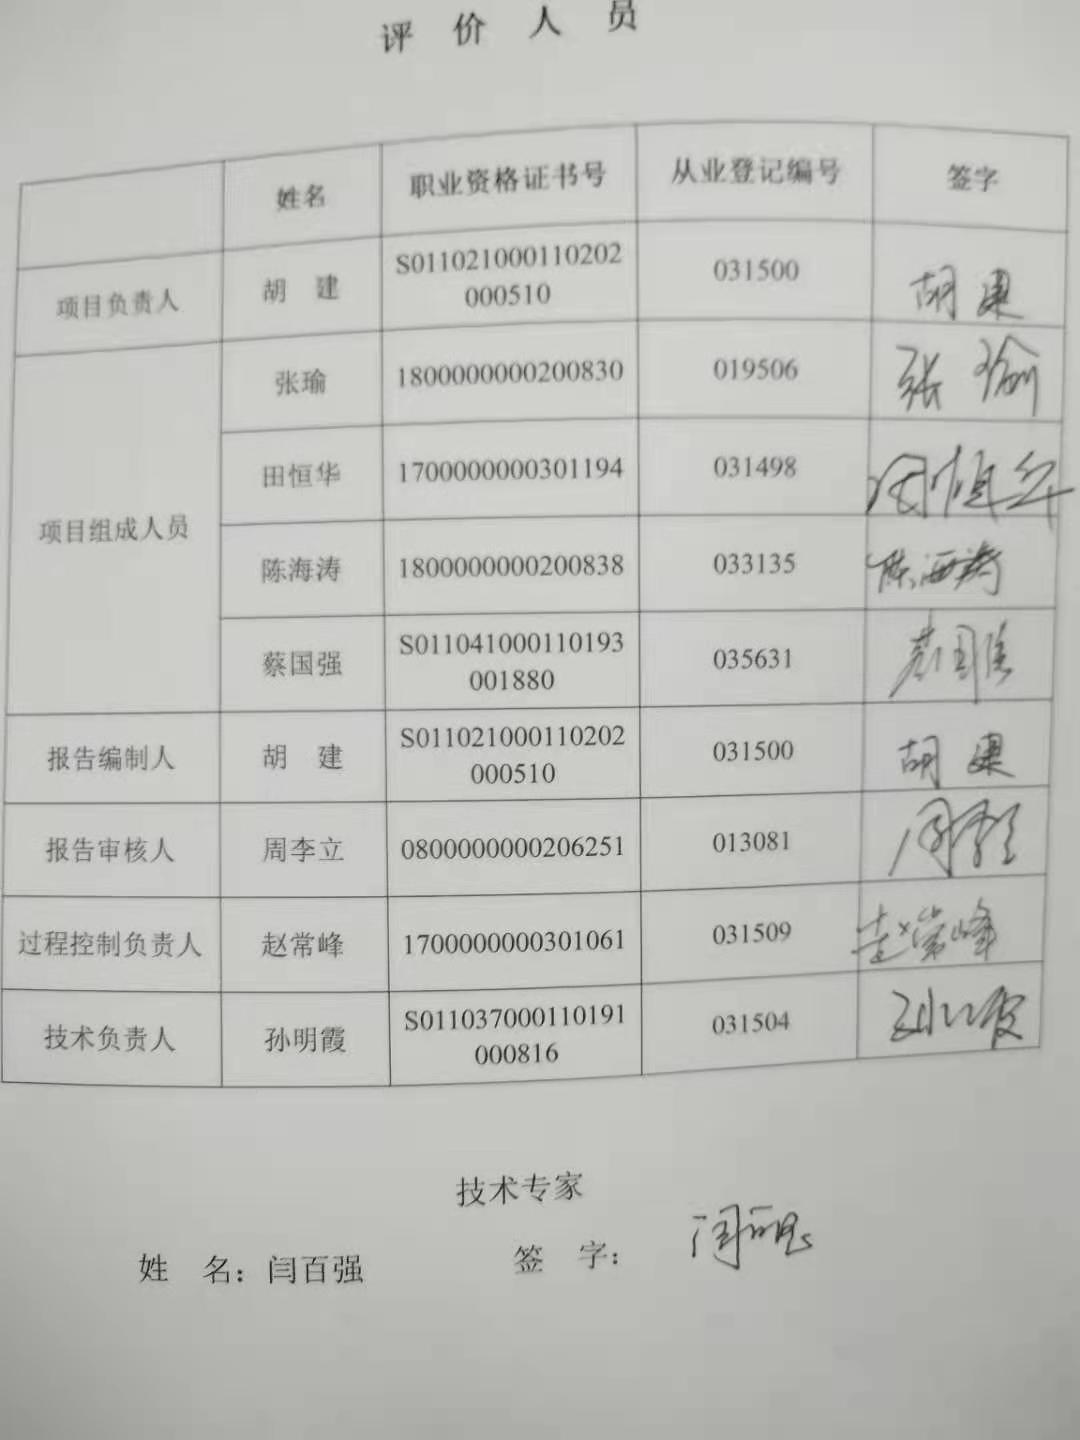 评 价 人 员
姓名 职业资格证书号 从业登记编号 签字
项目负责人 胡 建 S011021000110202000510 031500 胡 建
项目组成人员 张瑜 1800000000200830 019506 张 瑜
田恒华 1700000000301194 031498 田恒华
陈海涛 1800000000200838 033135 陈海涛
蔡国强 S011041000110193001880 035631 蔡国强
报告编制人 胡 建 S011021000110202000510 031500 胡 建
报告审核人 周李立 0800000000206251 013081
过程控制负责人 赵常峰 1700000000301061 031509 赵常峰
技术负责人 孙明霞 S011037000110191000816 031504
技术专家
姓 名：闫百强 签 字：